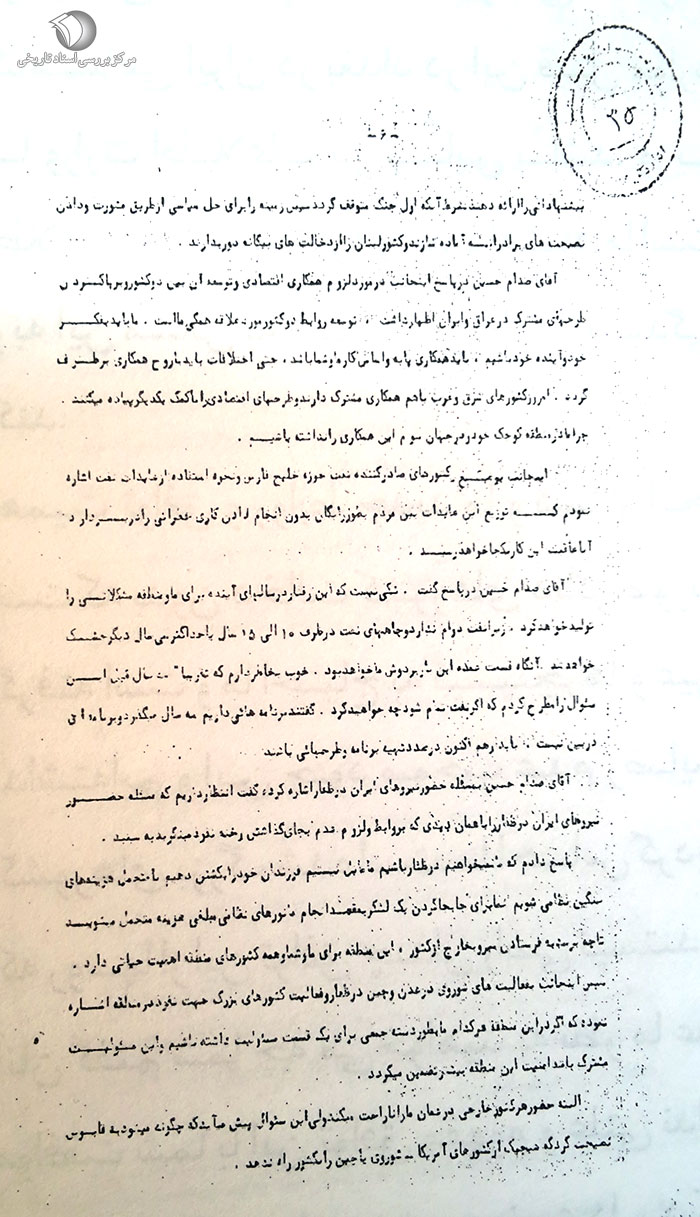 مرکز بررسی اسناد تاریخی
۳۵
- ۶ -
پیشنهاداتی را ارائه دهند بشرط آنکه اول جنگ متوقف گردد سپس زمینه را برای حل سیاسی از طریق مشورت و دادن
نصیحت های برادرانه آماده سازند و کشور لبنان را از دخالت های بیگانه دور بدارند .
آقای صدام حسین در پاسخ اینجانب در مورد لزوم همکاری اقتصادی و توسعه آن بین دو کشور و برپا کردن
طرحهای مشترک در عراق و ایران اظهار داشت ، توسعه روابط دو کشور مورد علاقه همگی ماست . ما باید بفکر
خود و آینده خود باشیم ، باید همکاری پایه و اساس کار ما و شما باشد ، حتی اختلافات باید با روح همکاری برطرف
گردد . امروز کشورهای شرق و غرب باهم همکاری مشترک دارند و طرحهای اقتصادی را با کمک یکدیگر پیاده میکنند .
چرا ما در منطقه کوچک خود و در جهان سوم این همکاری را نداشته باشیم .
اینجانب کشورهای صادر کننده نفت حوزه خلیج فارس و نحوه استفاده از عایدات نفت اشاره
نمودم که توزیع این عایدات بین مردم بطور رایگان بدون انجام دادن کاری خطراتی را در بر دارد
آیا عاقبت این کار بکجا خواهد رسید .
آقای صدام حسین در پاسخ گفت . شکی نیست که این رفتار در سالهای آینده برای ما و منطقه مشکلاتی را
تولید خواهد کرد . زیرا نفت دوام ندارد و چاههای نفت در ظرف ۱۰ الی ۱۵ سال یا حداکثر سی سال دیگر خشک
خواهد شد . آنگاه قسمت عمده این بار بردوش ما خواهد بود . خوب بخاطر دارم که تقریبا" سال قبل این
سئوال را مطرح کردم که اگر نفت تمام شود چه خواهید کرد . گفتند برنامه هائی داریم سه سال میگذرد و برنامه ای
در بین نیست ، باید از هم اکنون در صدد تهیه برنامه و طرحهائی باشند
آقای صدام حسین بمسئله حضور نیروهای ایران در ظفار اشاره کرده گفت انتظار داریم که مسئله حضور
نیروهای ایران در ظفار را با همان دیدی که بروابط و لزوم عدم بجای گذاشتن رخنه نفوذ مینگرید به بینید .
پاسخ دادم که ما نمیخواهیم در ظفار باشیم ما مایل نیستیم فرزندان خود را بکشتن دهیم یا متحمل هزینه های
سنگین نظامی شویم بنابراین جابجا کردن یک لشکر بقصد انجام مانورهای نظامی مبلغی هزینه متحمل میشوید
تا چه برسد به فرستادن نیرو بخارج از کشور ، این منطقه برای ما و شما و همه کشورهای منطقه اهمیت حیاتی دارد .
سپس اینجانب بفعالیت های شوروی در عدن و چین در ظفار و فعالیت کشورهای بزرگ جهت نفوذ در منطقه اشاره
نموده که اگر در این منطقه هر کدام ما بطور دسته جمعی برای یک قسمت مسئولیت داشته باشیم و این مسئولیت
مشترک باشد امنیت این منطقه بیشتر تضمین میگردد .
البته حضور هر کشور خارجی در عمان ما را ناراحت میکند ولی این سئوال پیش می آید که چگونه میشود به قابوس
نصیحت کرد که هیچیک از کشورهای آمریکا - شوروی یا چین را بکشور راه ندهد .